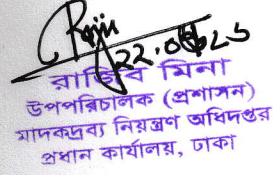 22.0
রাজিব মিনা
উপপরিচালক (প্রশাসন)
মাদকদ্রব্য নিয়ন্ত্রণ অধিদপ্তর
প্রধান কার্যালয়, ঢাকা